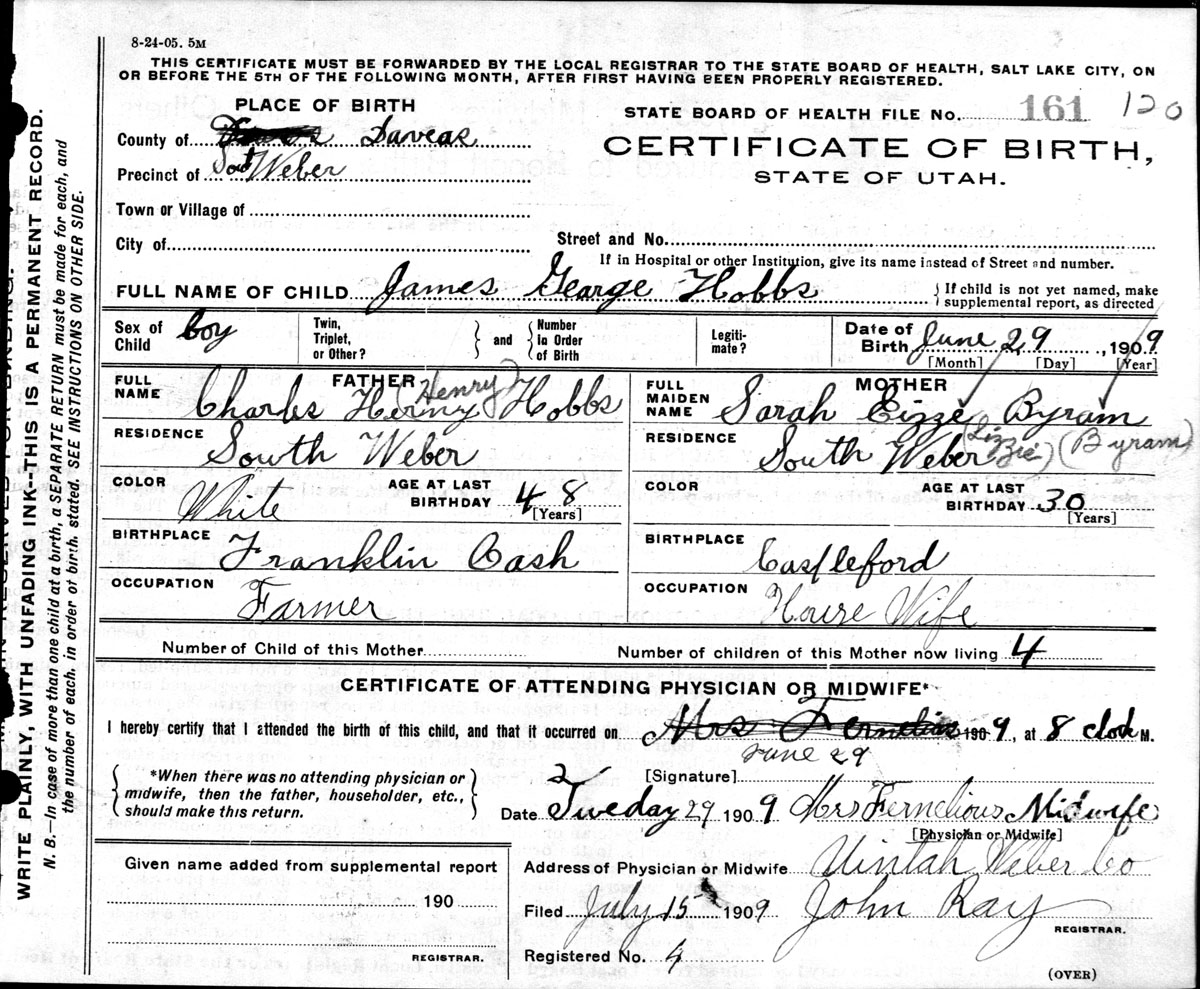 8-24-05. 5M
THIS CERTIFICATE MUST BE FORWARDED BY THE LOCAL REGISTRAR TO THE STATE BOARD OF HEALTH, SALT LAKE CITY, ON
OR BEFORE THE 5TH OF THE FOLLOWING MONTH, AFTER FIRST HAVING BEEN PROPERLY REGISTERED.
PLACE OF BIRTH
STATE BOARD OF HEALTH FILE No. 161 120
County of Daveas
CERTIFICATE OF BIRTH,
Precinct of Weber
STATE OF UTAH.
Town or Village of
City of
Street and No.
If in Hospital or other Institution, give its name instead of Street and number.
FULL NAME OF CHILD James George Hobbs
{ If child is not yet named, make
supplemental report, as directed
Sex of Child boy
Twin, Triplet, or Other? } and { Number In Order of Birth
Legiti-mate?
Date of Birth June 29, 1909
[Month] [Day] [Year]
FATHER
FULL NAME Charles Hermy (Henry) Hobbs
RESIDENCE South Weber
COLOR White AGE AT LAST BIRTHDAY 48
[Years]
BIRTHPLACE Franklin Cash
OCCUPATION Farmer
MOTHER
FULL MAIDEN NAME Sarah Eizze Byram
RESIDENCE South Weber (Lizzie) (Byram)
COLOR AGE AT LAST BIRTHDAY 30
[Years]
BIRTHPLACE Castleford
OCCUPATION House Wife
Number of Child of this Mother
Number of children of this Mother now living 4
CERTIFICATE OF ATTENDING PHYSICIAN OR MIDWIFE*
I hereby certify that I attended the birth of this child, and that it occurred on Mrs Fernelias 1909, at 8 clock M.
June 29
{ *When there was no attending physician or
midwife, then the father, householder, etc.,
should make this return. }
[Signature]
Date Tuesday 29 1909 Mrs Fernelious Midwife
[Physician or Midwife]
Given name added from supplemental report
190
REGISTRAR.
Address of Physician or Midwife Uintah Weber Co
Filed July 15 1909 John Ray
REGISTRAR.
Registered No. 4
(OVER)
WRITE PLAINLY, WITH UNFADING INK--THIS IS A PERMANENT RECORD.
N. B.—In case of more than one child at a birth, a SEPARATE RETURN must be made for each, and
the number of each, in order of birth, stated. SEE INSTRUCTIONS ON OTHER SIDE.